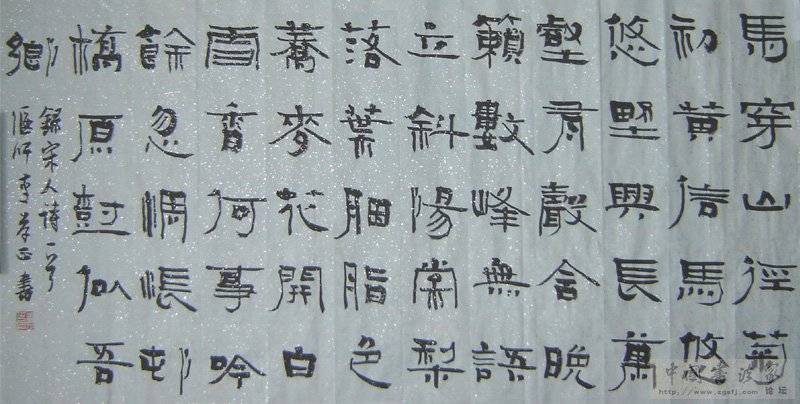 馬穿山徑菊
初黃信馬悠
悠野興長萬
壑有聲含晚
籟數峰無語
立斜陽棠梨
落葉胭脂色
蕎麥花開白
雪香何事吟
餘忽惆悵邨
橋原樹似吾
鄉
錄宋人詩一首
偃師李正書
中国书法家论坛
http://www.zgsfj.com